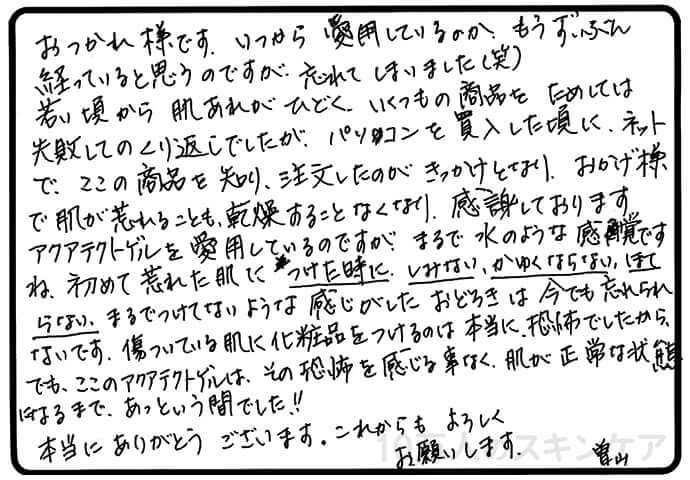 おつかれ様です。いつから愛用しているのか、もうずいぶん
経っていると思うのですが、忘れてしまいました(笑)
若い頃から肌あれがひどく、いくつもの商品をためしては
失敗してのくり返しでしたが、パソコンを買入した頃に、ネット
で、ここの商品を知り、注文したのがきっかけとなり、おかげ様
で肌が荒れることも、乾燥することなくなり、感謝しております
アクアテクトゲルを愛用しているのですが、まるで水のような感覚です
ね、初めて荒れた肌につけた時に、しみない、かゆくならない、ほて
らない、まるでつけてないような感じがしたおどろきは今でも忘れられ
ないです。傷ついている肌に化粧品をつけるのは本当に、恐怖でしたから、
でも、ここのアクアテクトゲルは、その恐怖を感じる事なく、肌が正常な状態
になるまで、あっという間でした!!
本当にありがとうございます。これからもよろしく
お願いします。
曽山
10万人のスキンケア